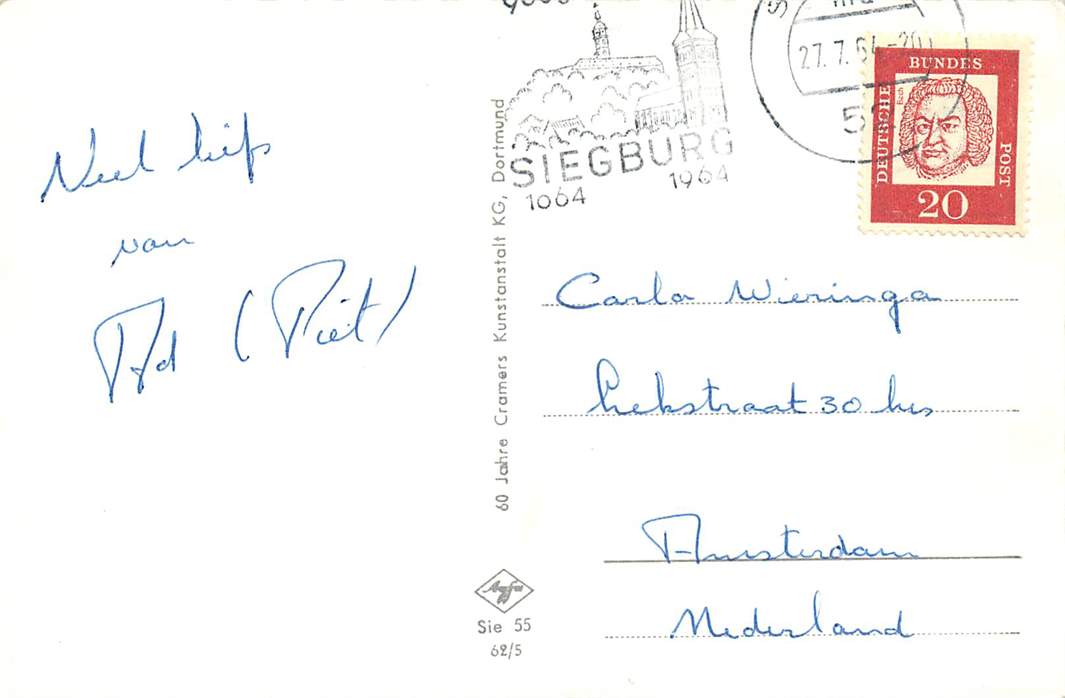 Veel liefs
van
Ad (Piet)
60 Jahre Cramers Kunstanstalt KG, Dortmund
SIEGBURG
1064 1964
27.7.64-20
DEUTSCHE
BUNDES
POST
Bach
20
Carla Wieringa
Lekstraat 30 hs
Amsterdam
Nederland
Agfa
Sie 55
62/5